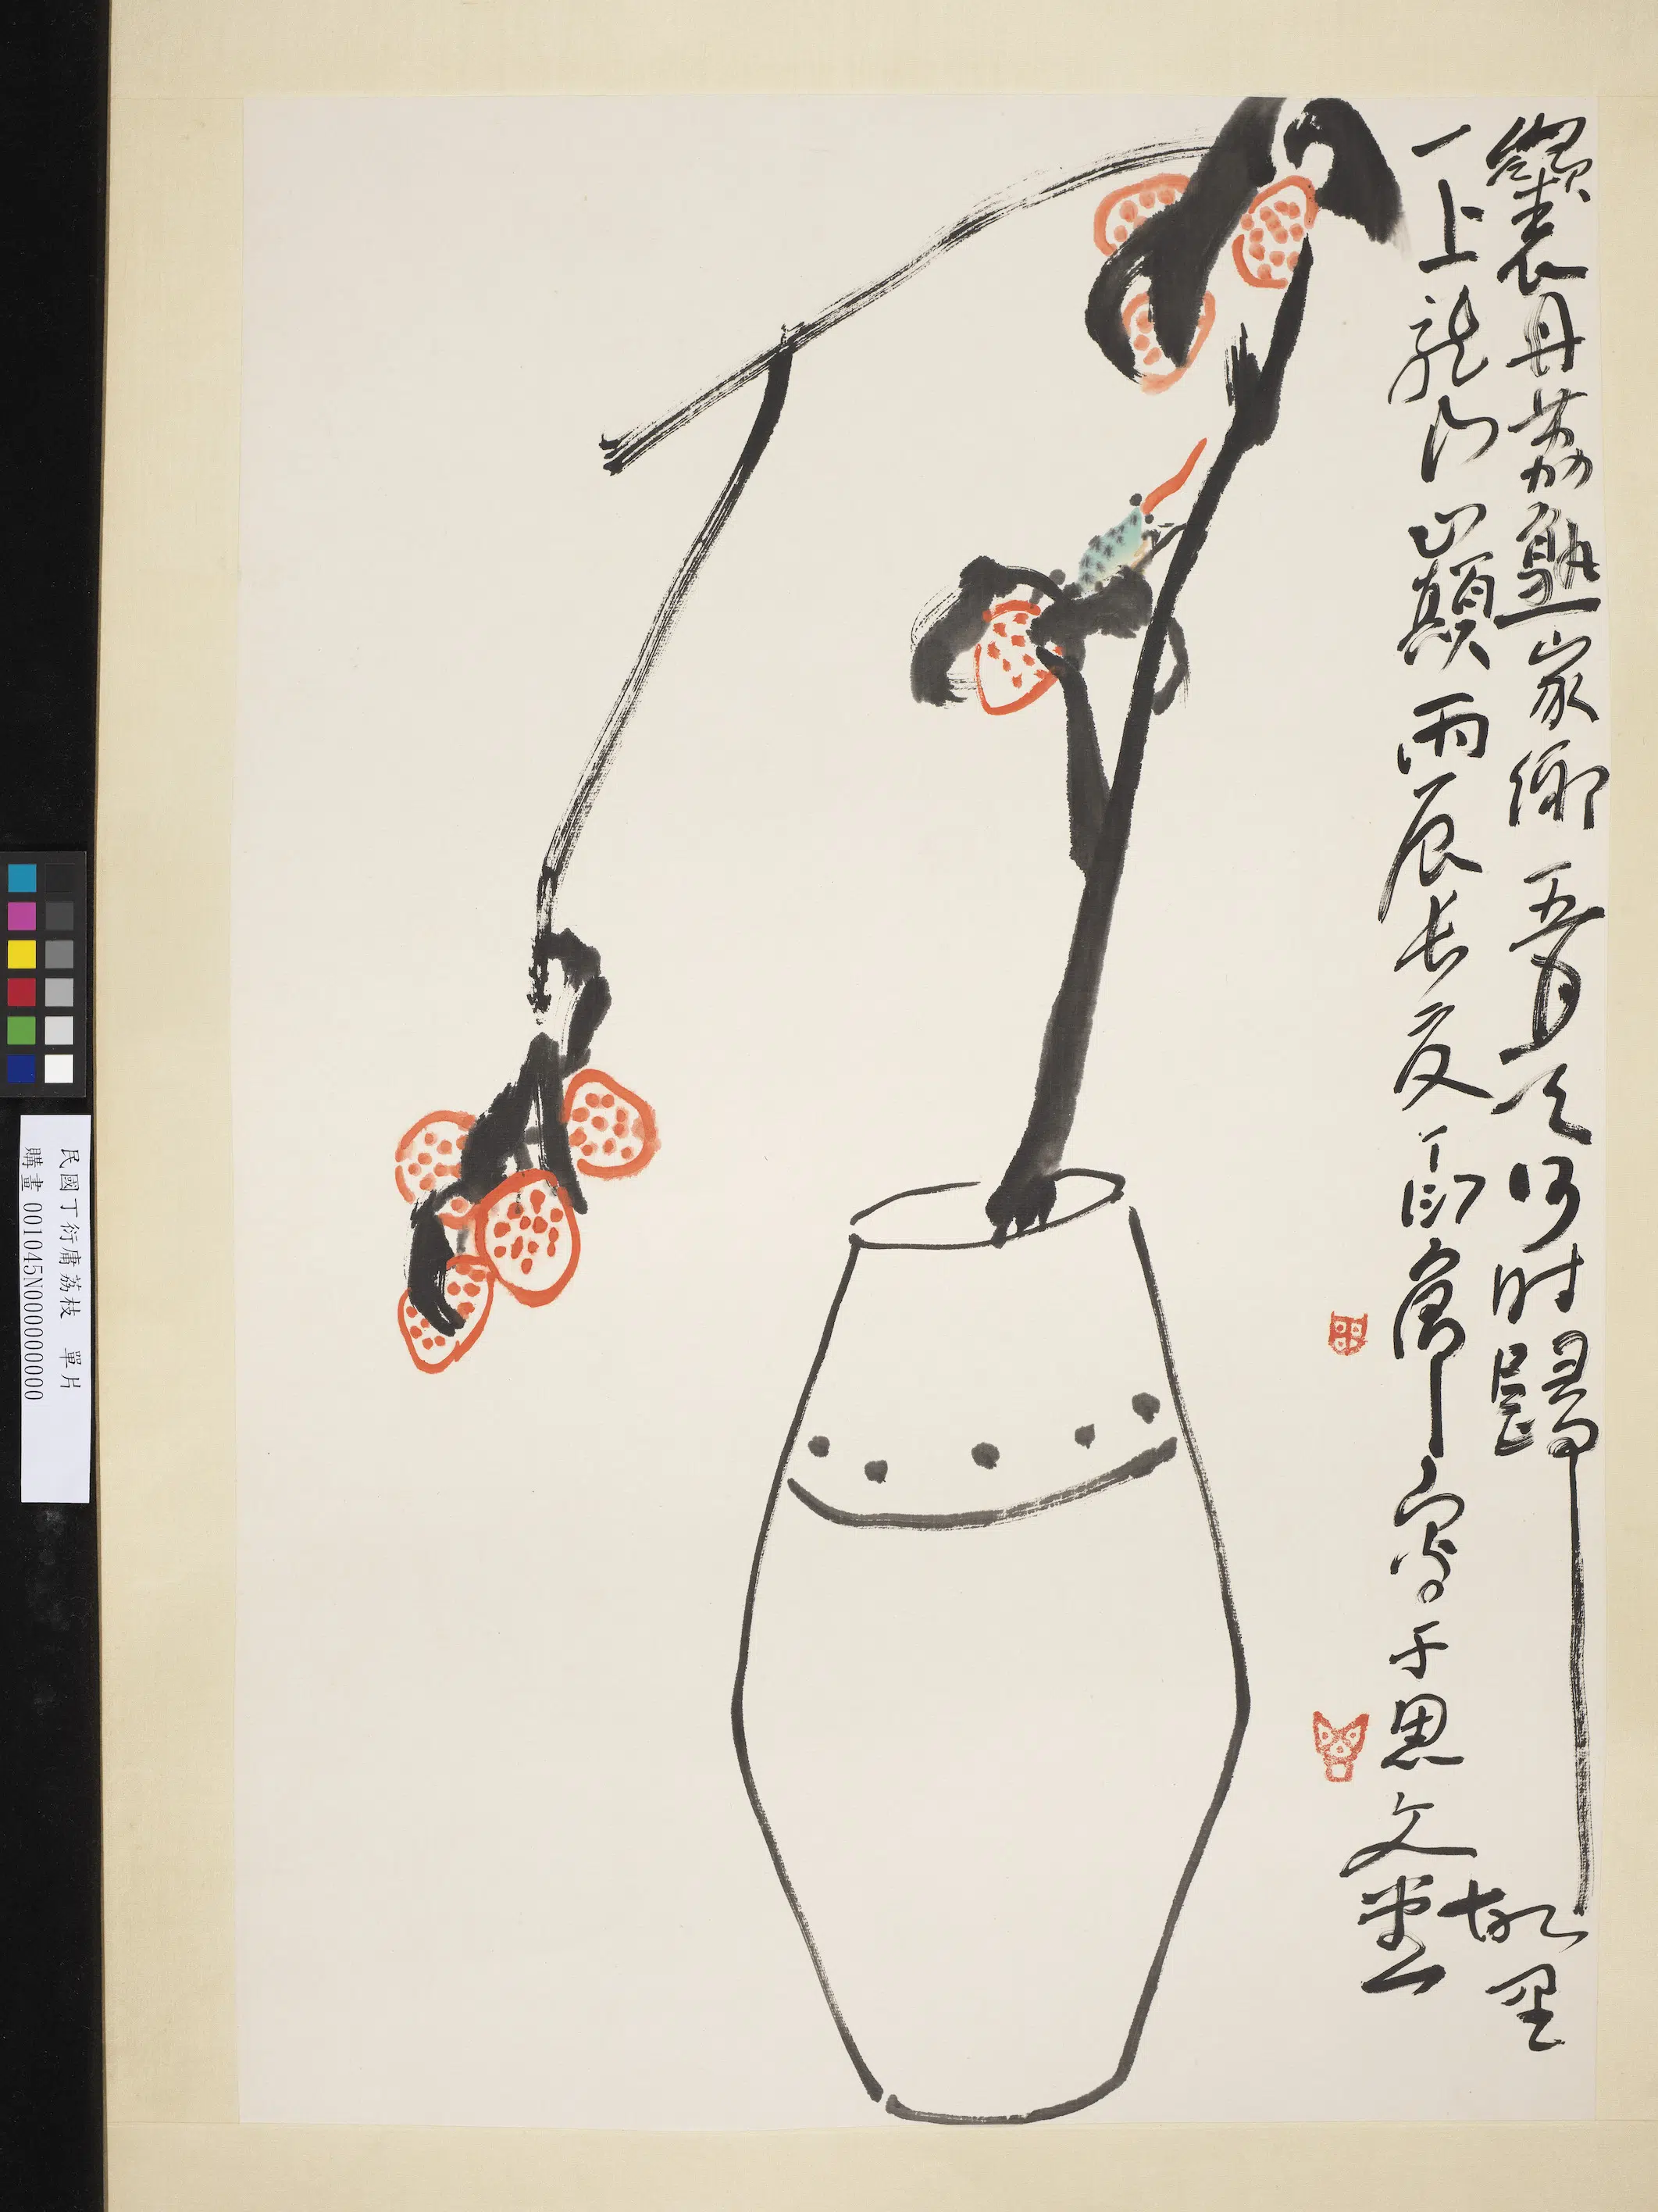 丹荔熟家鄉五月天何時歸故里
一上龍門巔丙辰長夏丁衍庸寫于思文
民國丁衍庸荔枝 單片
購畫 001045N000000000